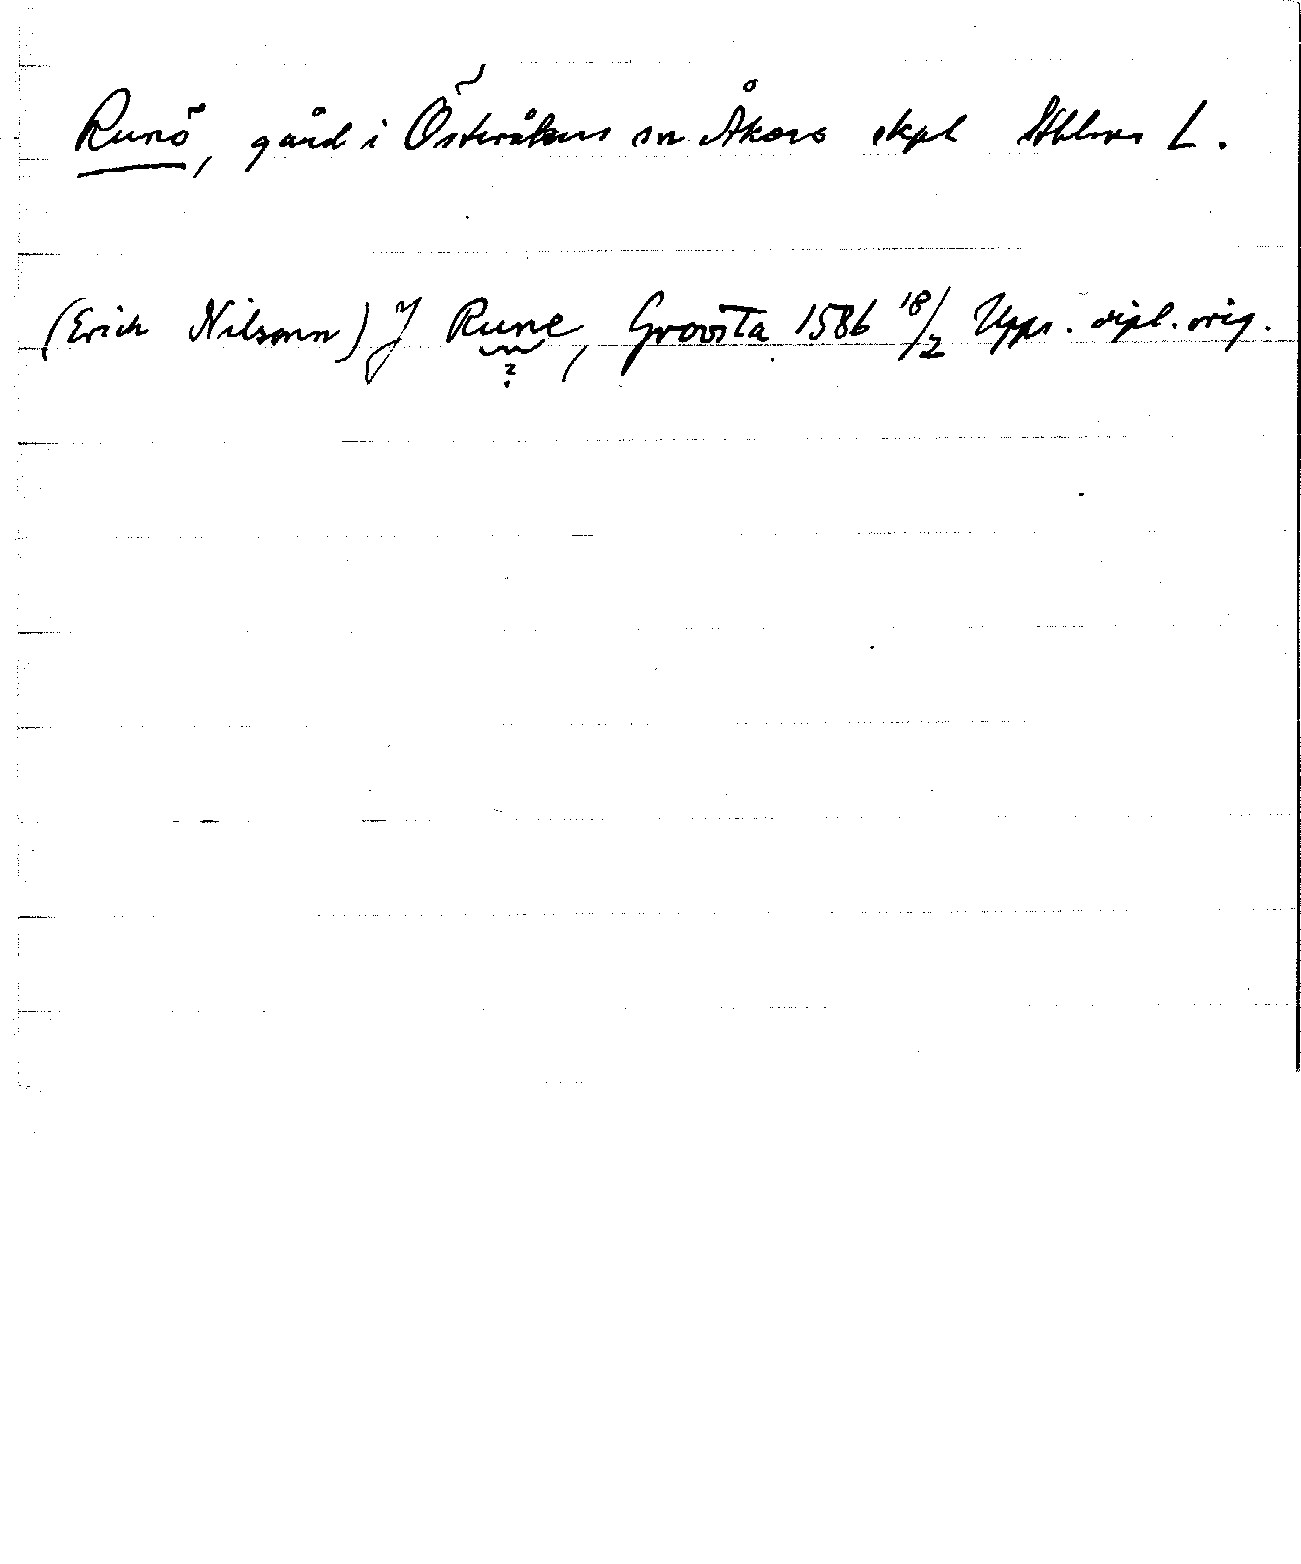 Runö, gård i Österåkers sn Åkers skpl Sthlms L.
(Erich Nilsonn) J Rune, Groosta 1586 18/2 Upps. dipl. orig.
?